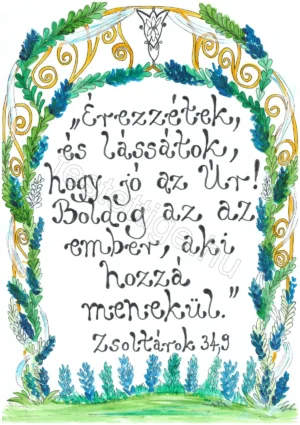 „Érezzétek,
és lássátok,
hogy jó az Úr!
Boldog az az
ember, aki
hozzá
menekül."
Zsoltárok 34,9